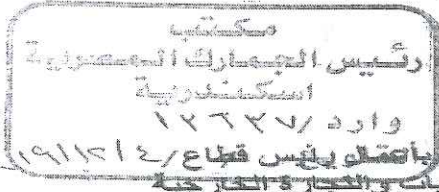 مكتب
رئيس الجمارك المصرية
اسكندرية
وارد / ١٢٦٣٧
بأعمال رئيس قطاع
والتجارة الخارجية